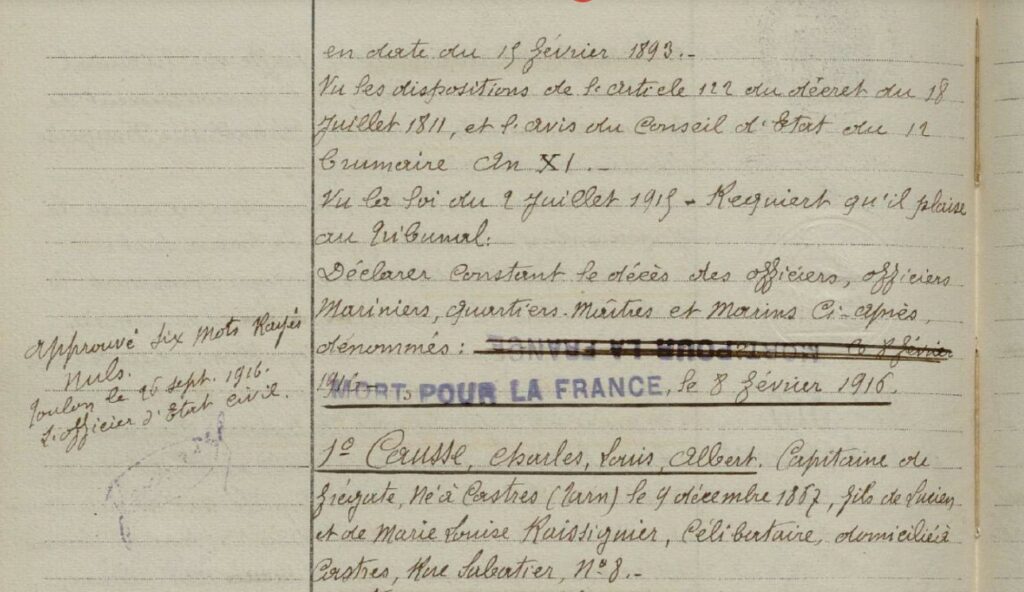 en date du 15 février 1893.-
Vu les dispositions de l'article 122 du décret du 18
Juillet 1811, et l'avis du Conseil d'Etat du 12
brumaire An XI.-
Vu la loi du 2 Juillet 1915 - Requiert qu'il plaise
au Tribunal:
Déclarer constant le décès des officiers, officiers
Mariniers, quartiers-Maîtres et Marins Ci-après,
dénommés : MORT POUR LA FRANCE le 8 février
1916 MORTS POUR LA FRANCE, le 8 février 1916.
1º Causse, Charles, Louis, Albert. Capitaine de
frégate, Né à Castres (Tarn) le 9 décembre 1867, fils de Lucien
et de Marie Louise Raissiguier, Célibataire, domicilié à
Castres, Rue Sabatier, Nº 8.-
Approuvé six mots Rayés
Nuls.
Toulon le 26 sept. 1916.
L'officier d'Etat Civil.